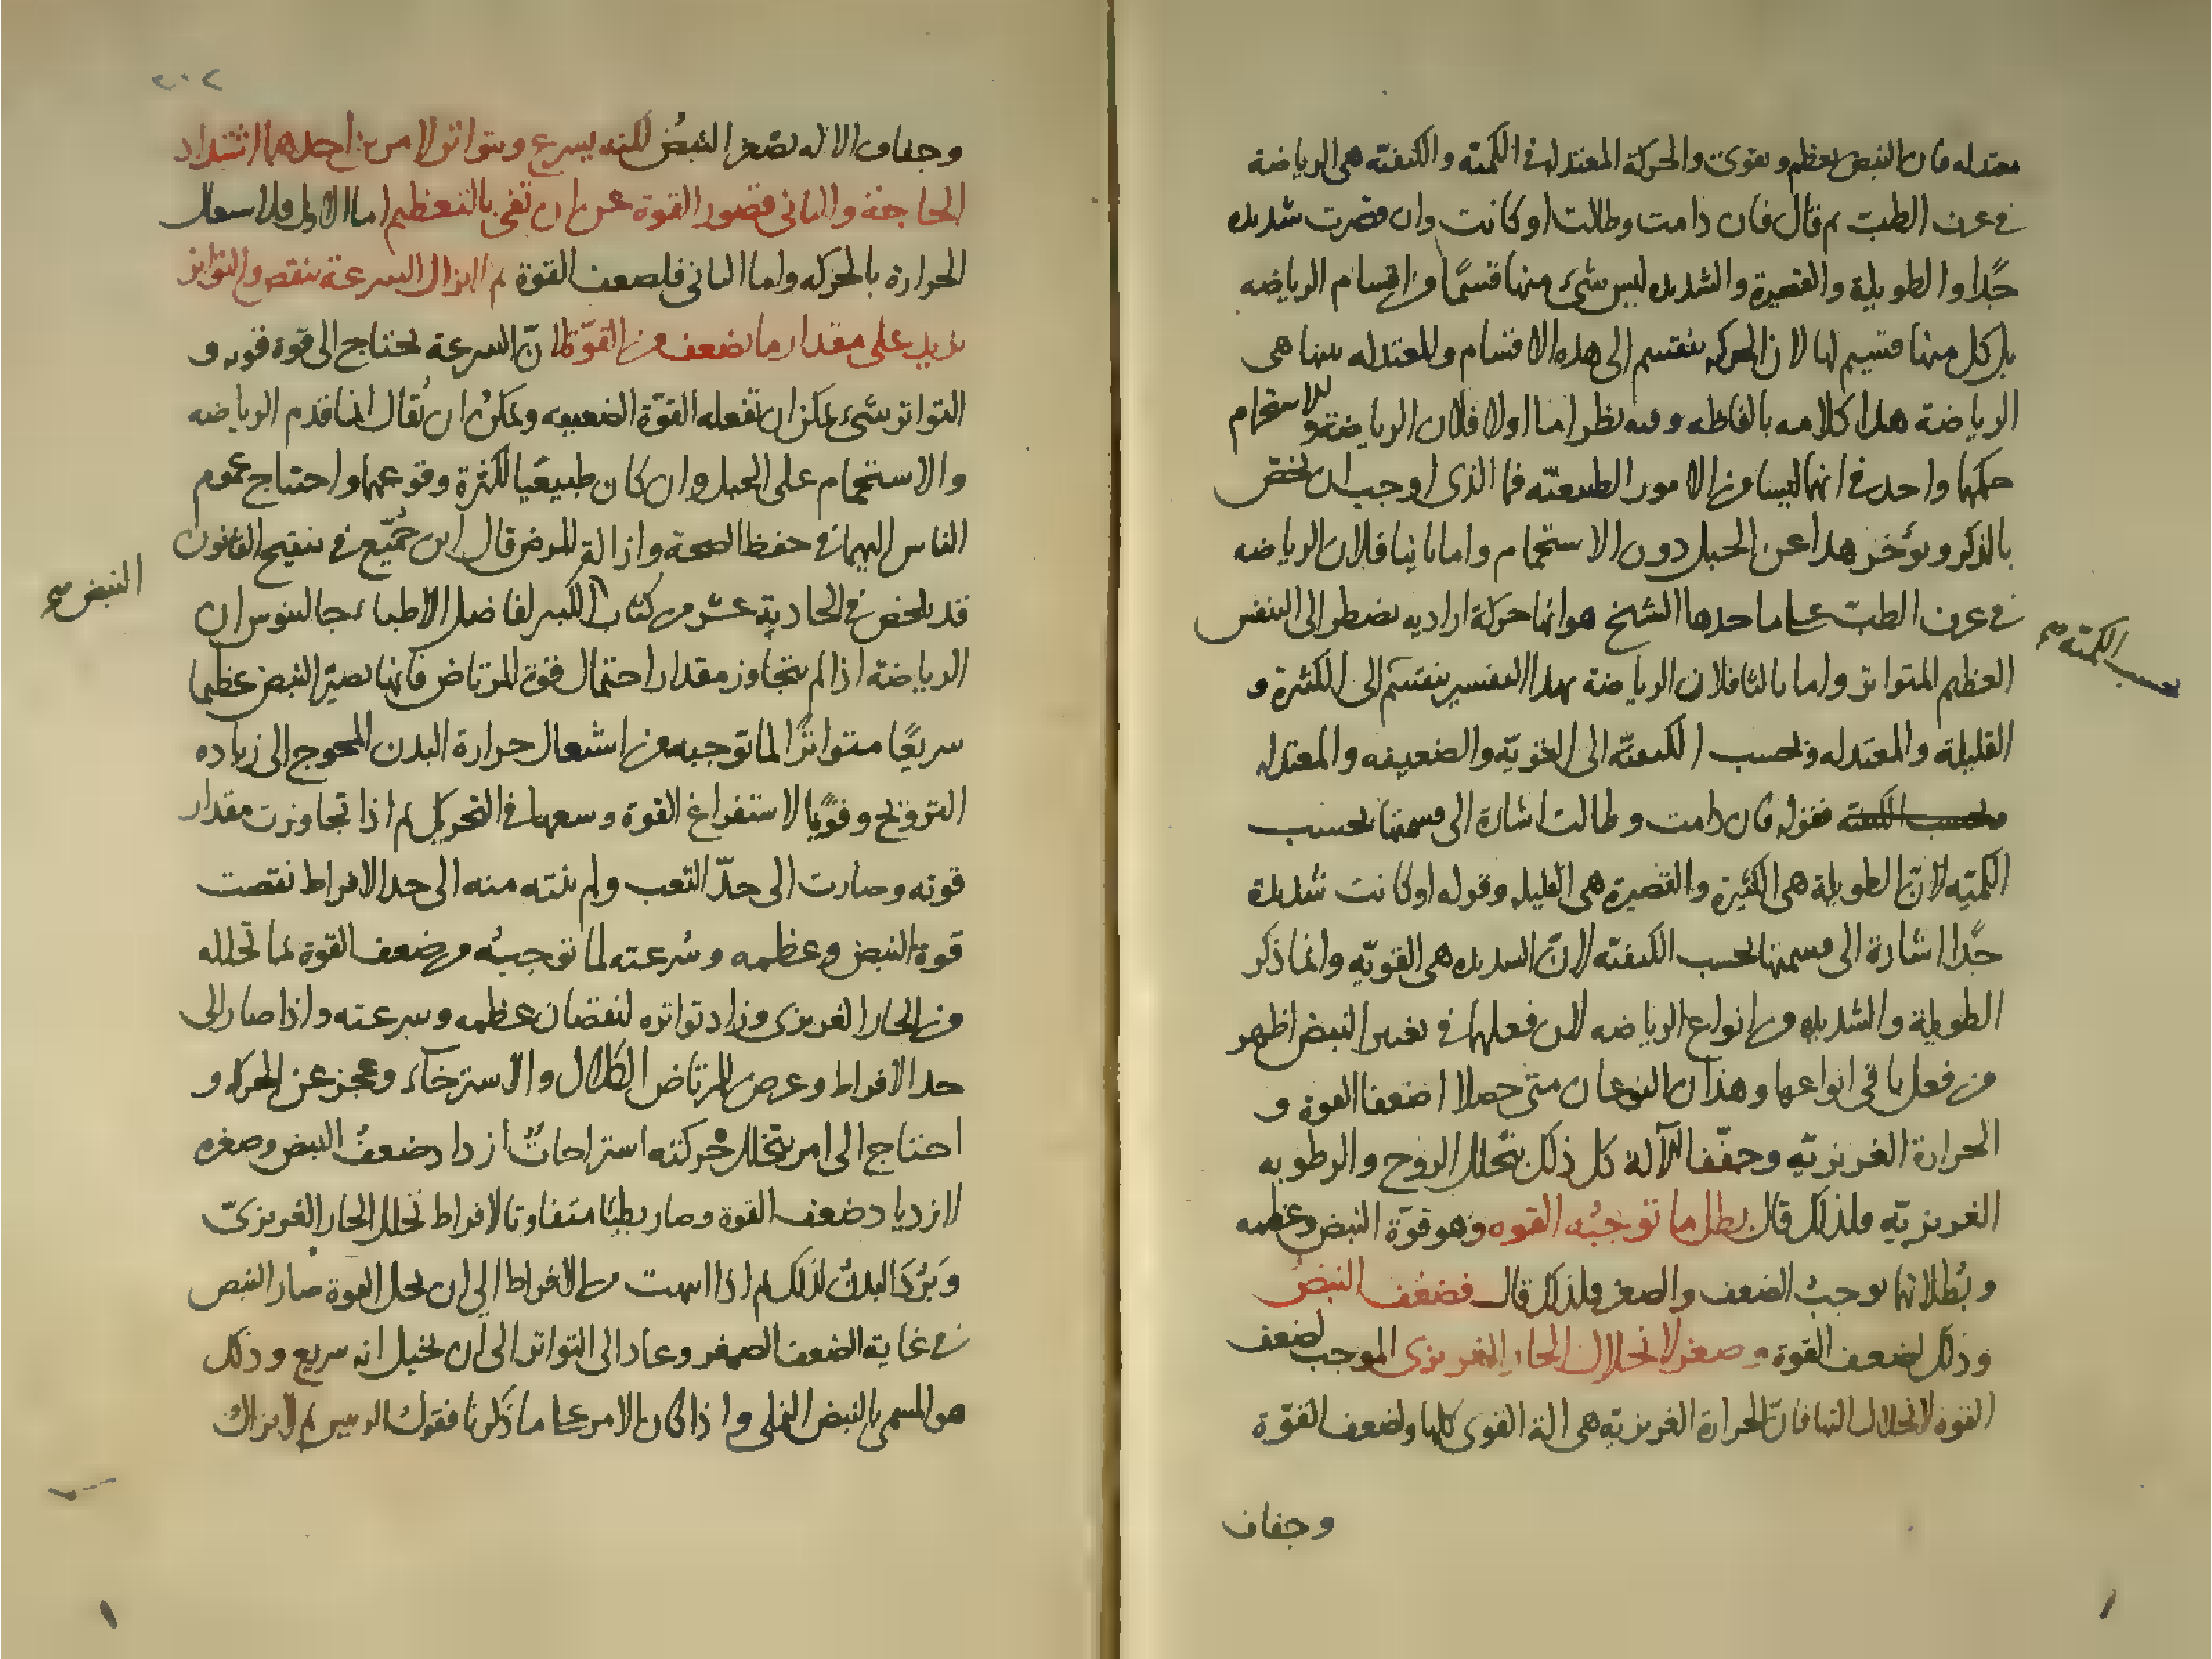 معتدله فان النبض يعظم ويقوى والحركة المعتدلة في الكمية والكيفية هى الرياضة
في عرف الطب ثم قال فان دامت وطالت او كانت وان قصرت شديده
جدًا والطويلة والقصيرة والشديده ليس شىء منها قسمًا من اقسام الرياضه
بل كل منها قسيم لها لان الحركه ينقسم الى هذه الاقسام والمعتدله منها هى
الرياضة هذا كلامه بالفاظه وفيه نظر اما اولا فلان الرياضة والاستحمام
حكمها واحد في انهما ليسا من الامور الطبيعيّة فما الذى اوجب ان يختص
بالذكر ويؤخر هذا عن الحبل دون الاستحمام واما ثانيا فلان الرياضه
في عرف الطب على ما حدها الشيخ هو انها حركة اراديه تضطر الى التنفس
بحسب الكميّة صح
العظيم المتواتر واما ثالثا فلان الرياضة بهذا التفسير ينقسم الى الكثيرة و
القليلة والمعتدله وبحسب الكيفيّة الى القويّة والضعيفه والمعتدله
وبحسب الكيفية فقوله فان دامت وطالت اشارة الى قسمتها بحسب
الكميّه لانّ الطويلة هى الكثيرة والقصيرة هى القليله وقوله او كانت شديدة
جدًا اشارة الى قسمتها بحسب الكيفيّة لانّ الشديده هى القويّة وانما ذكر
الطويلة والشديده من انواع الرياضه لان فعلهما في تغيير النبض اظهر
من فعل باقى انواعها وهذان النوعان متى حصلا اضعفا القوة و
الحرارة الغريزيّة وجفّفا الآلة كل ذلك بتحلل الروح والرطوبه
الغريزيّه فلذلك قال بطل ما توجبُه القوه وهو قوّة النبض وعظمه
وبُطلانها يوجبُ الضعف والصغر فلذلك قال فضعف النبضُ
وذلك لضعف القوة وصغر لانحلال الحار الغريزى الموجب لضعف
القوه لانحلال التها فانّ الحرارة الغريزيّه هى الة القوى كلها ولضعف القوّة
وجفاف
٢٠٢
وجفاف الاله يصغر النبضُ لكنه يسرع ويتواتر لامرين احدهما اشتداد
الحاجة والثانى قصور القوة عن ان تفى بالتعظيم اما الاول فلاشتعال
الحرارة بالحركه واما الثانى فلضعف القوة ثم لا يزال السرعة ينقص والتواتر
يزيد على مقدار ما يضعف من القوّة لانّ السرعة تحتاج الى قوة قويه و
التواتر شىء يمكن ان تفعله القوّة الضعيفه ويمكن ان يُقال انما قدم الرياضه
والاستحمام على الحبل وان كان طبيعيًا لكثرة وقوعهما واحتياج عموم
الناس اليهما في حفظ الصحة وازالة المرض قال ابن جُمَيْع في تنقيح القانون
قد يلخص في الحادية عشر من كتاب الكبير لفاضل الاطباء جالينوس ان
النبض صح
الرياضة اذا لم يتجاوز مقدار احتمال قوة المرتاض فانها تصيّر النبض عظيما
سريعًا متواترًا لما توجبه من اشتعال حرارة البدن المحوج الى زياده
الترويح وقويًا لاستفراغ القوة وسعها في التحريك ثم اذا تجاوزت مقدار
قوته وصارت الى حدّ التعب ولم ينته منه الى حد الافراط نقصت
قوة النبض وعظمه وسُرعته لما توجبُه من ضعف القوة بما تحلله
من الحار الغريزى وزاد تواتره لنقصان عظمه وسرعته واذا صار الى
حد الافراط وعرض للمرتاض الكلال والاسترخاء وعجز عن الحركه و
احتاج الى امر يتخلل حركته استراحاتٌ ازداد ضعفُ النبض وصغره
لازدياد ضعف القوة وصار بطيئا متفاوتا لافراط تحلل الحار الغريزىّ
وَبَرْد البدن لذلك ثم اذا انتهت من الافراط الى ان تحل القوة صار النبض
في غاية الضعف والصغر وعاد الى التواتر الى ان تخيل انه سريع وذلك
هو المسمى بالنبض النملى واذا كان الامر على ما ذكرنا فقول الرئيس ثم لا يزال